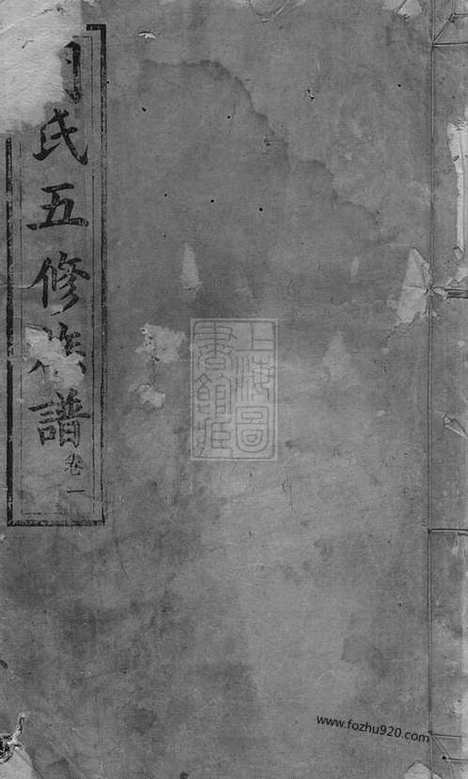 氏五修族譜
卷一
上海圖書館藏
www.fozhu920.com